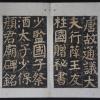 唐故通議大
夫行薛王友
柱國贈秘書
少監國子祭
酒太子少保
顏君廟碑銘